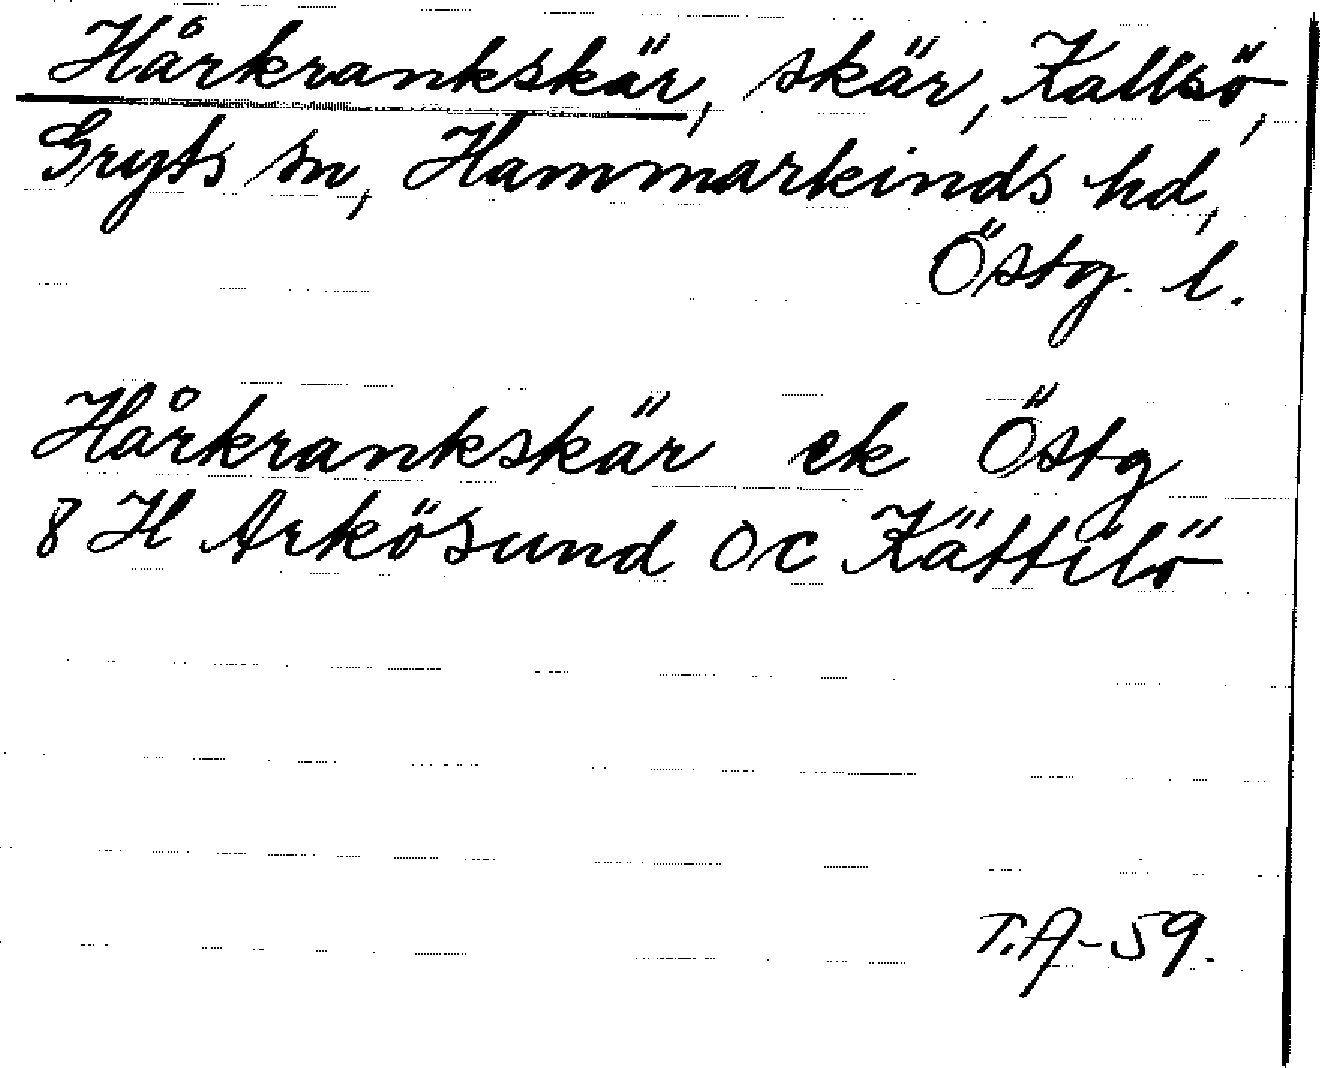 Hårkrankskär, skär, Kallsö,
Gryts sn, Hammarkinds hd,
Östg. l.
Hårkrankskär ek Östg
8 H Arkösund OC Kättilö
T.A-59.